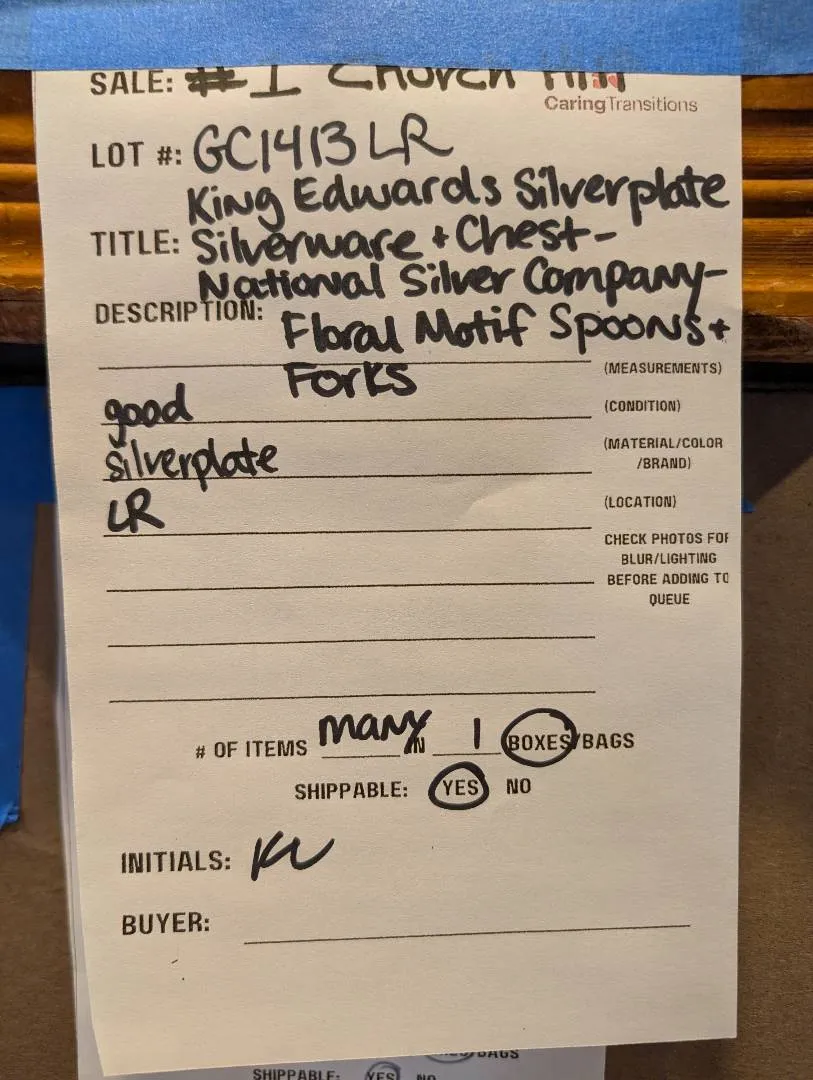 SALE: #1 Church Hill
CaringTransitions
LOT #: GC1413LR
King Edwards Silverplate
TITLE: Silverware + Chest-
National Silver Company-
DESCRIPTION: Floral Motif Spoons +
Forks
(MEASUREMENTS)
good (CONDITION)
silverplate (MATERIAL/COLOR
/BRAND)
LR (LOCATION)
CHECK PHOTOS FOR
BLUR/LIGHTING
BEFORE ADDING TO
QUEUE
# OF ITEMS many IN 1 BOXES/BAGS
SHIPPABLE: YES NO
INITIALS:
BUYER:
BAGS
SHIPPABLE: YES NO